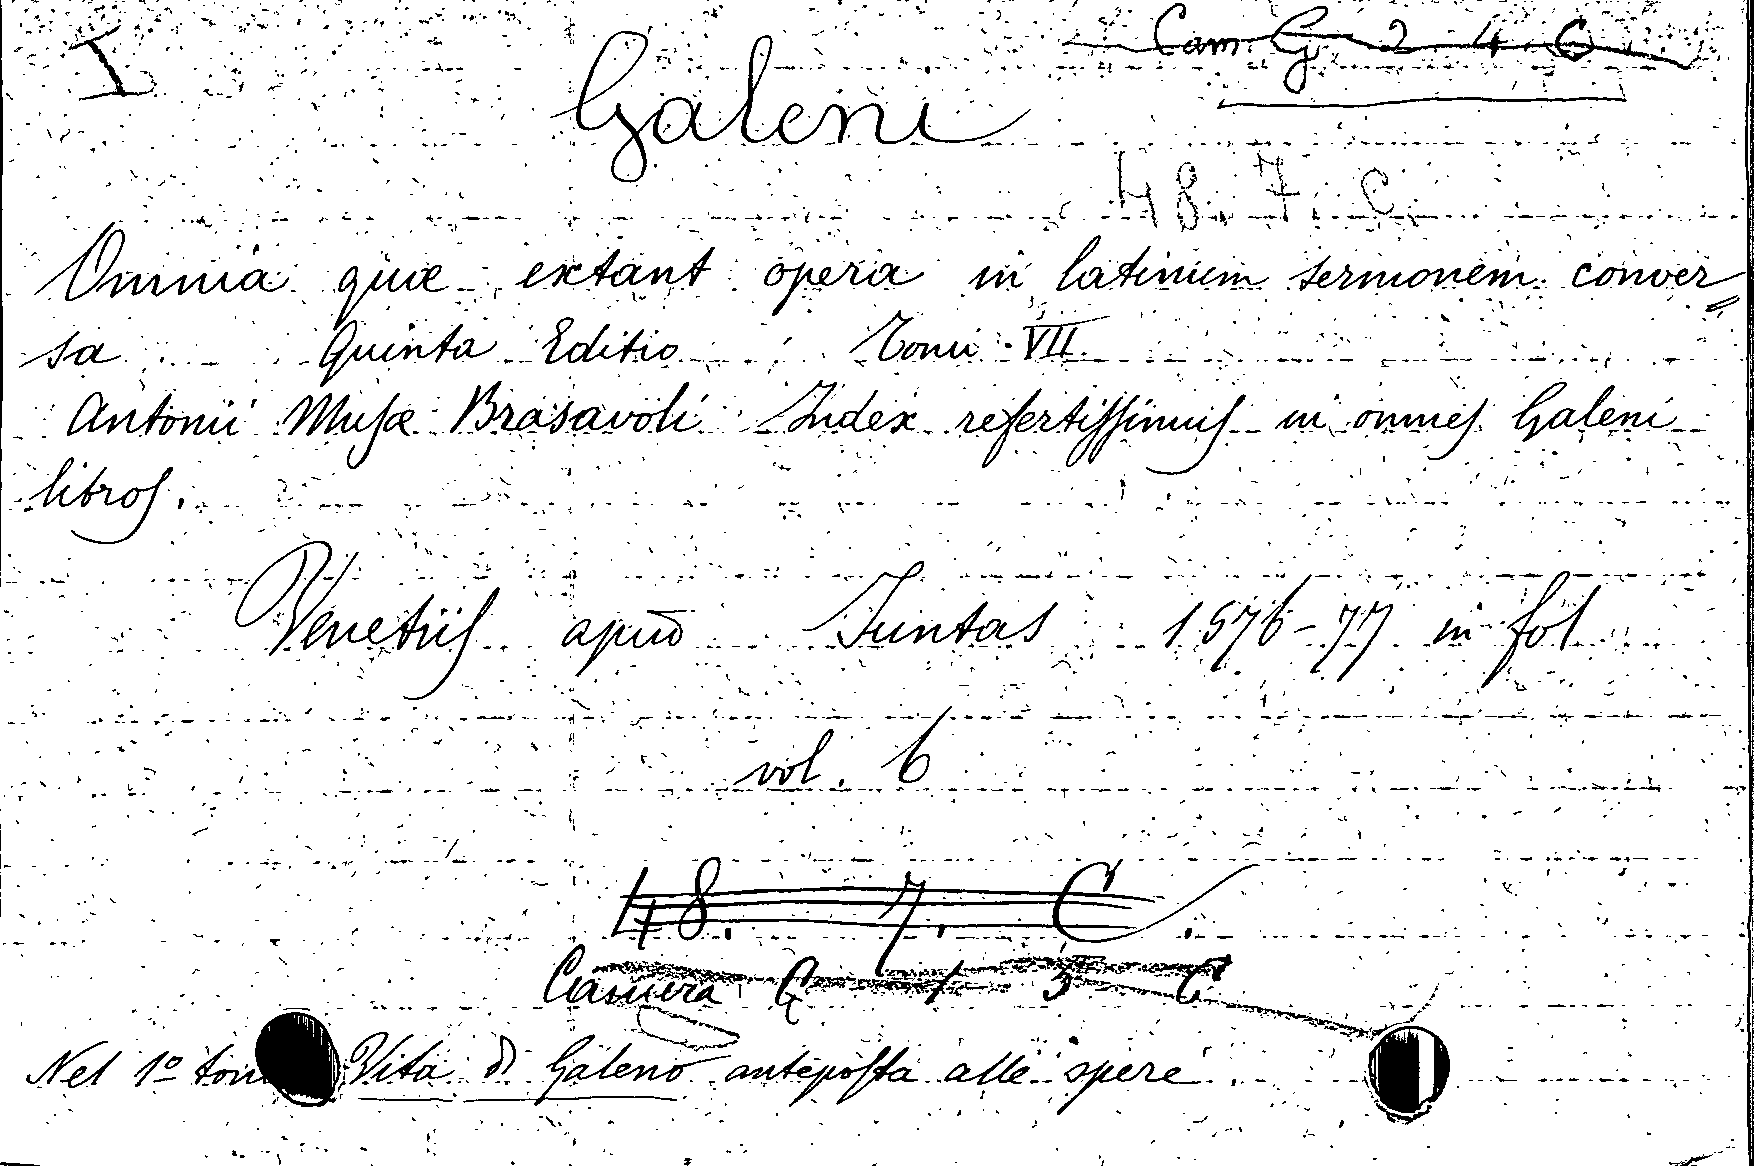 I
Cam. G. 2. 4. C
Galeni
48. 7. C.
Omnia quæ extant opera in latinum sermonem conver=
sa Quinta Editio Tomi VII.
Antonii Musæ Brasavoli Index refertissimus in omnes Galeni
libros.
Venetiis apud Juntas 1576-77 in fol
vol. 6
48. 7. C.
Camera G 1 3 C
Nel 1º tomo Vita di Galeno anteposta alle opere